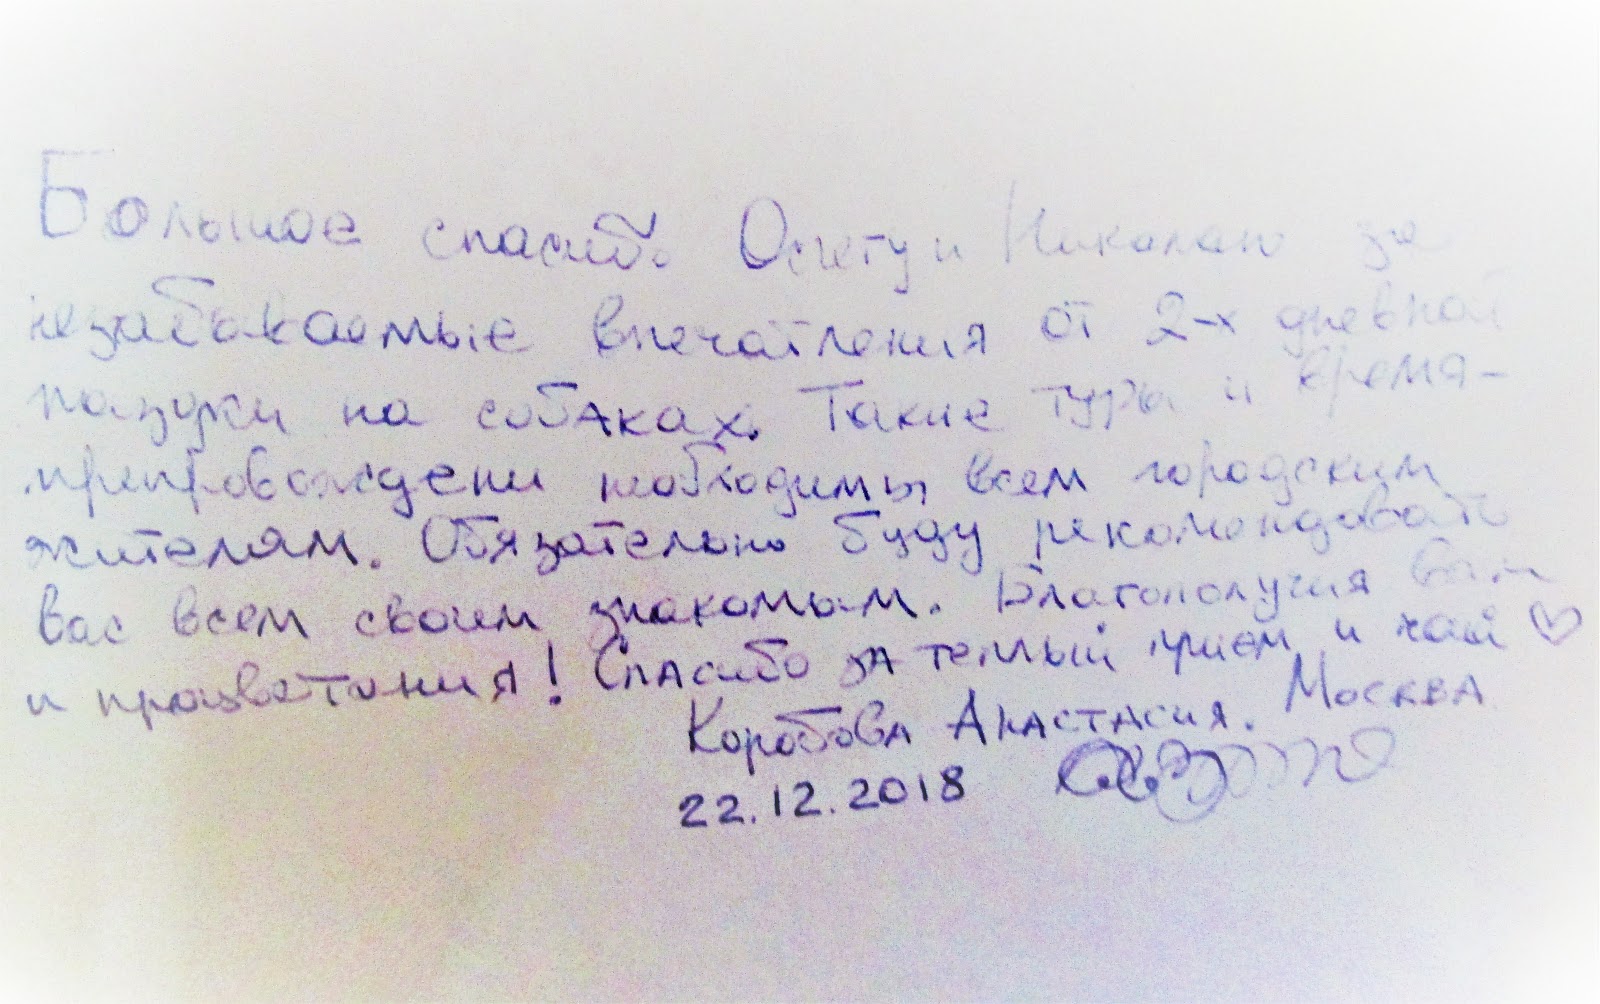 Большое спасибо Олегу и Николаю за
незабываемые впечатления от 2-х дневной
поездки на собаках. Такие туры и время-
препровождени необходимы всем городским
жителям. Обязательно буду рекомендовать
вас всем своим знакомым. Благополучия Вам
и процветания! Спасибо за теплый прием и чай ♡
Коробова Анастасия. Москва
22.12.2018